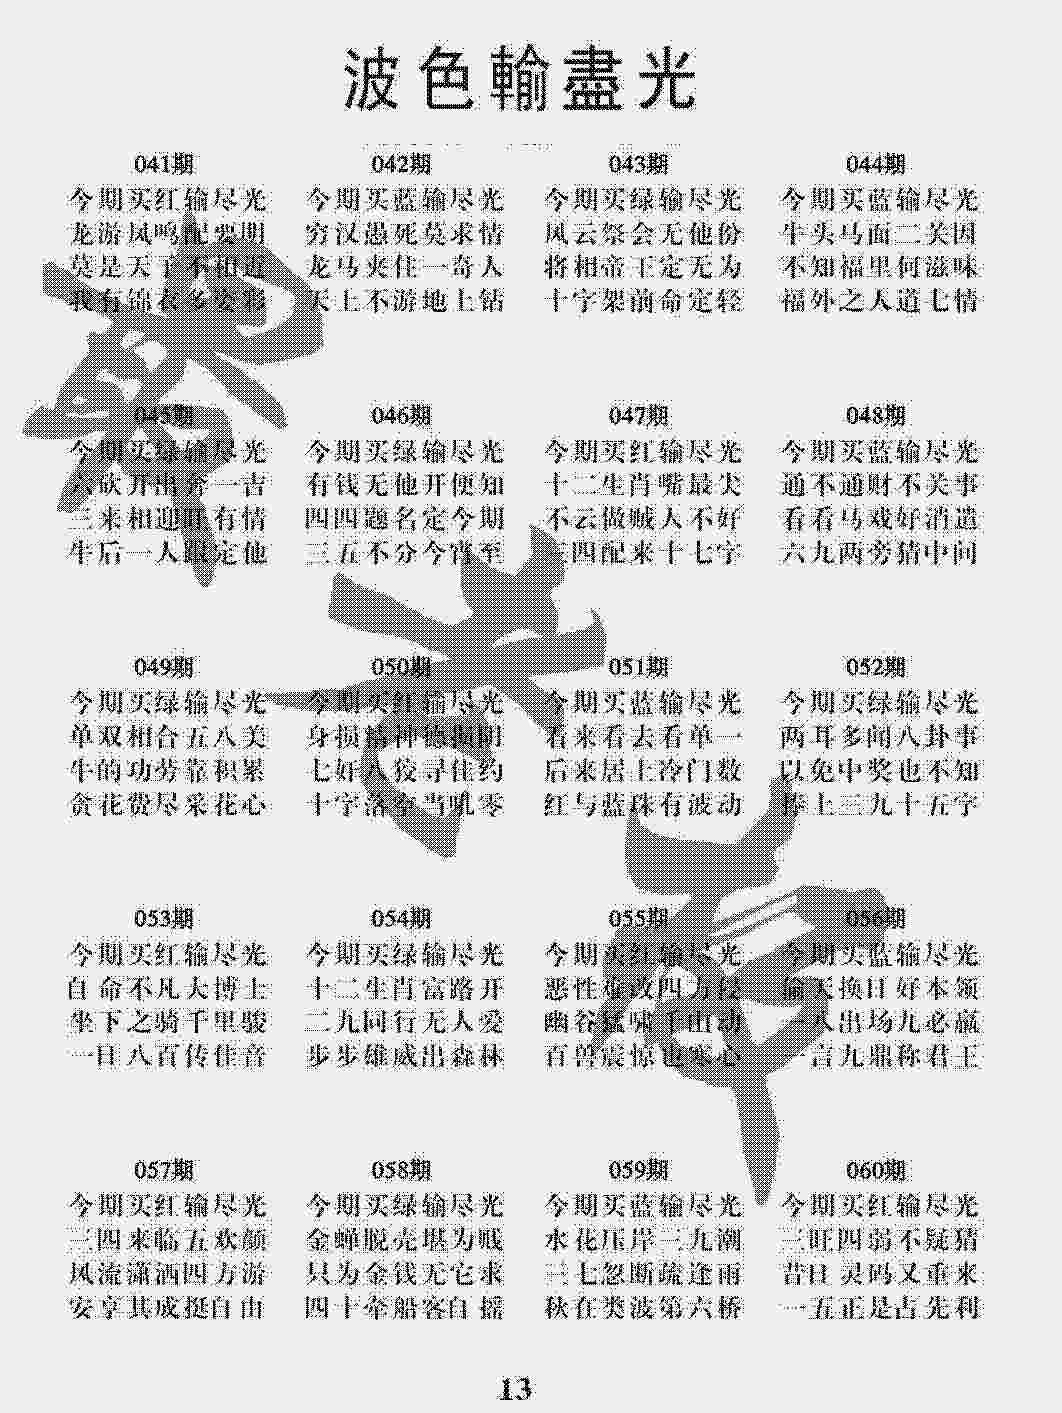 波色輸盡光
041期
今期买红输尽光
龙游凤鸣配要明
莫是天子不相近
我有锦衣多安彩
042期
今期买蓝输尽光
穷汉愚死莫求情
龙马夹住一奇人
天上不游地上钻
043期
今期买绿输尽光
风云祭会无他份
将相帝王定无为
十字架前命定轻
044期
今期买蓝输尽光
牛头马面二关因
不知福里何滋味
福外之人道七情
045期
今期买绿输尽光
六欲开出奔一吉
三来相迎旺有情
牛后一人跟定他
046期
今期买绿输尽光
有钱无他开便知
四四题名定今期
三五不分今宵至
047期
今期买红输尽光
十二生肖嘴最尖
不云做贼人不好
三四配来十七字
048期
今期买蓝输尽光
通不通财不关事
看看马戏好消遣
六九两旁猜中间
049期
今期买绿输尽光
单双相合五八美
牛的功劳靠积累
贪花费尽采花心
050期
今期买红输尽光
身损精神德损明
七奸八狡寻佳约
十字落空当吼零
051期
今期买蓝输尽光
看来看去看单一
后来居上冷门数
红与蓝珠有波动
052期
今期买绿输尽光
两耳多闻八卦事
以免中奖也不知
捧上三九十五字
053期
今期买红输尽光
自命不凡大博士
坐下之骑千里骏
一日八百传佳音
054期
今期买绿输尽光
十二生肖富路开
二九同行无人爱
步步雄威出森林
055期
今期买红输尽光
恶性难改四方民
幽谷猛啸千山动
百兽震惊也寒心
056期
今期买蓝输尽光
偷天换日好本领
一八出场九必赢
一言九鼎称君王
057期
今期买红输尽光
三四来临五欢颜
风流潇洒四方游
安享其成挺自由
058期
今期买绿输尽光
金蝉脱壳堪为贱
只为金钱无它求
四十牵船客自摇
059期
今期买蓝输尽光
水花压岸二九潮
三七忽断疏逢雨
秋在类波第六桥
060期
今期买红输尽光
三旺四弱不疑猜
昔日灵码又重来
一五正是占先利
13